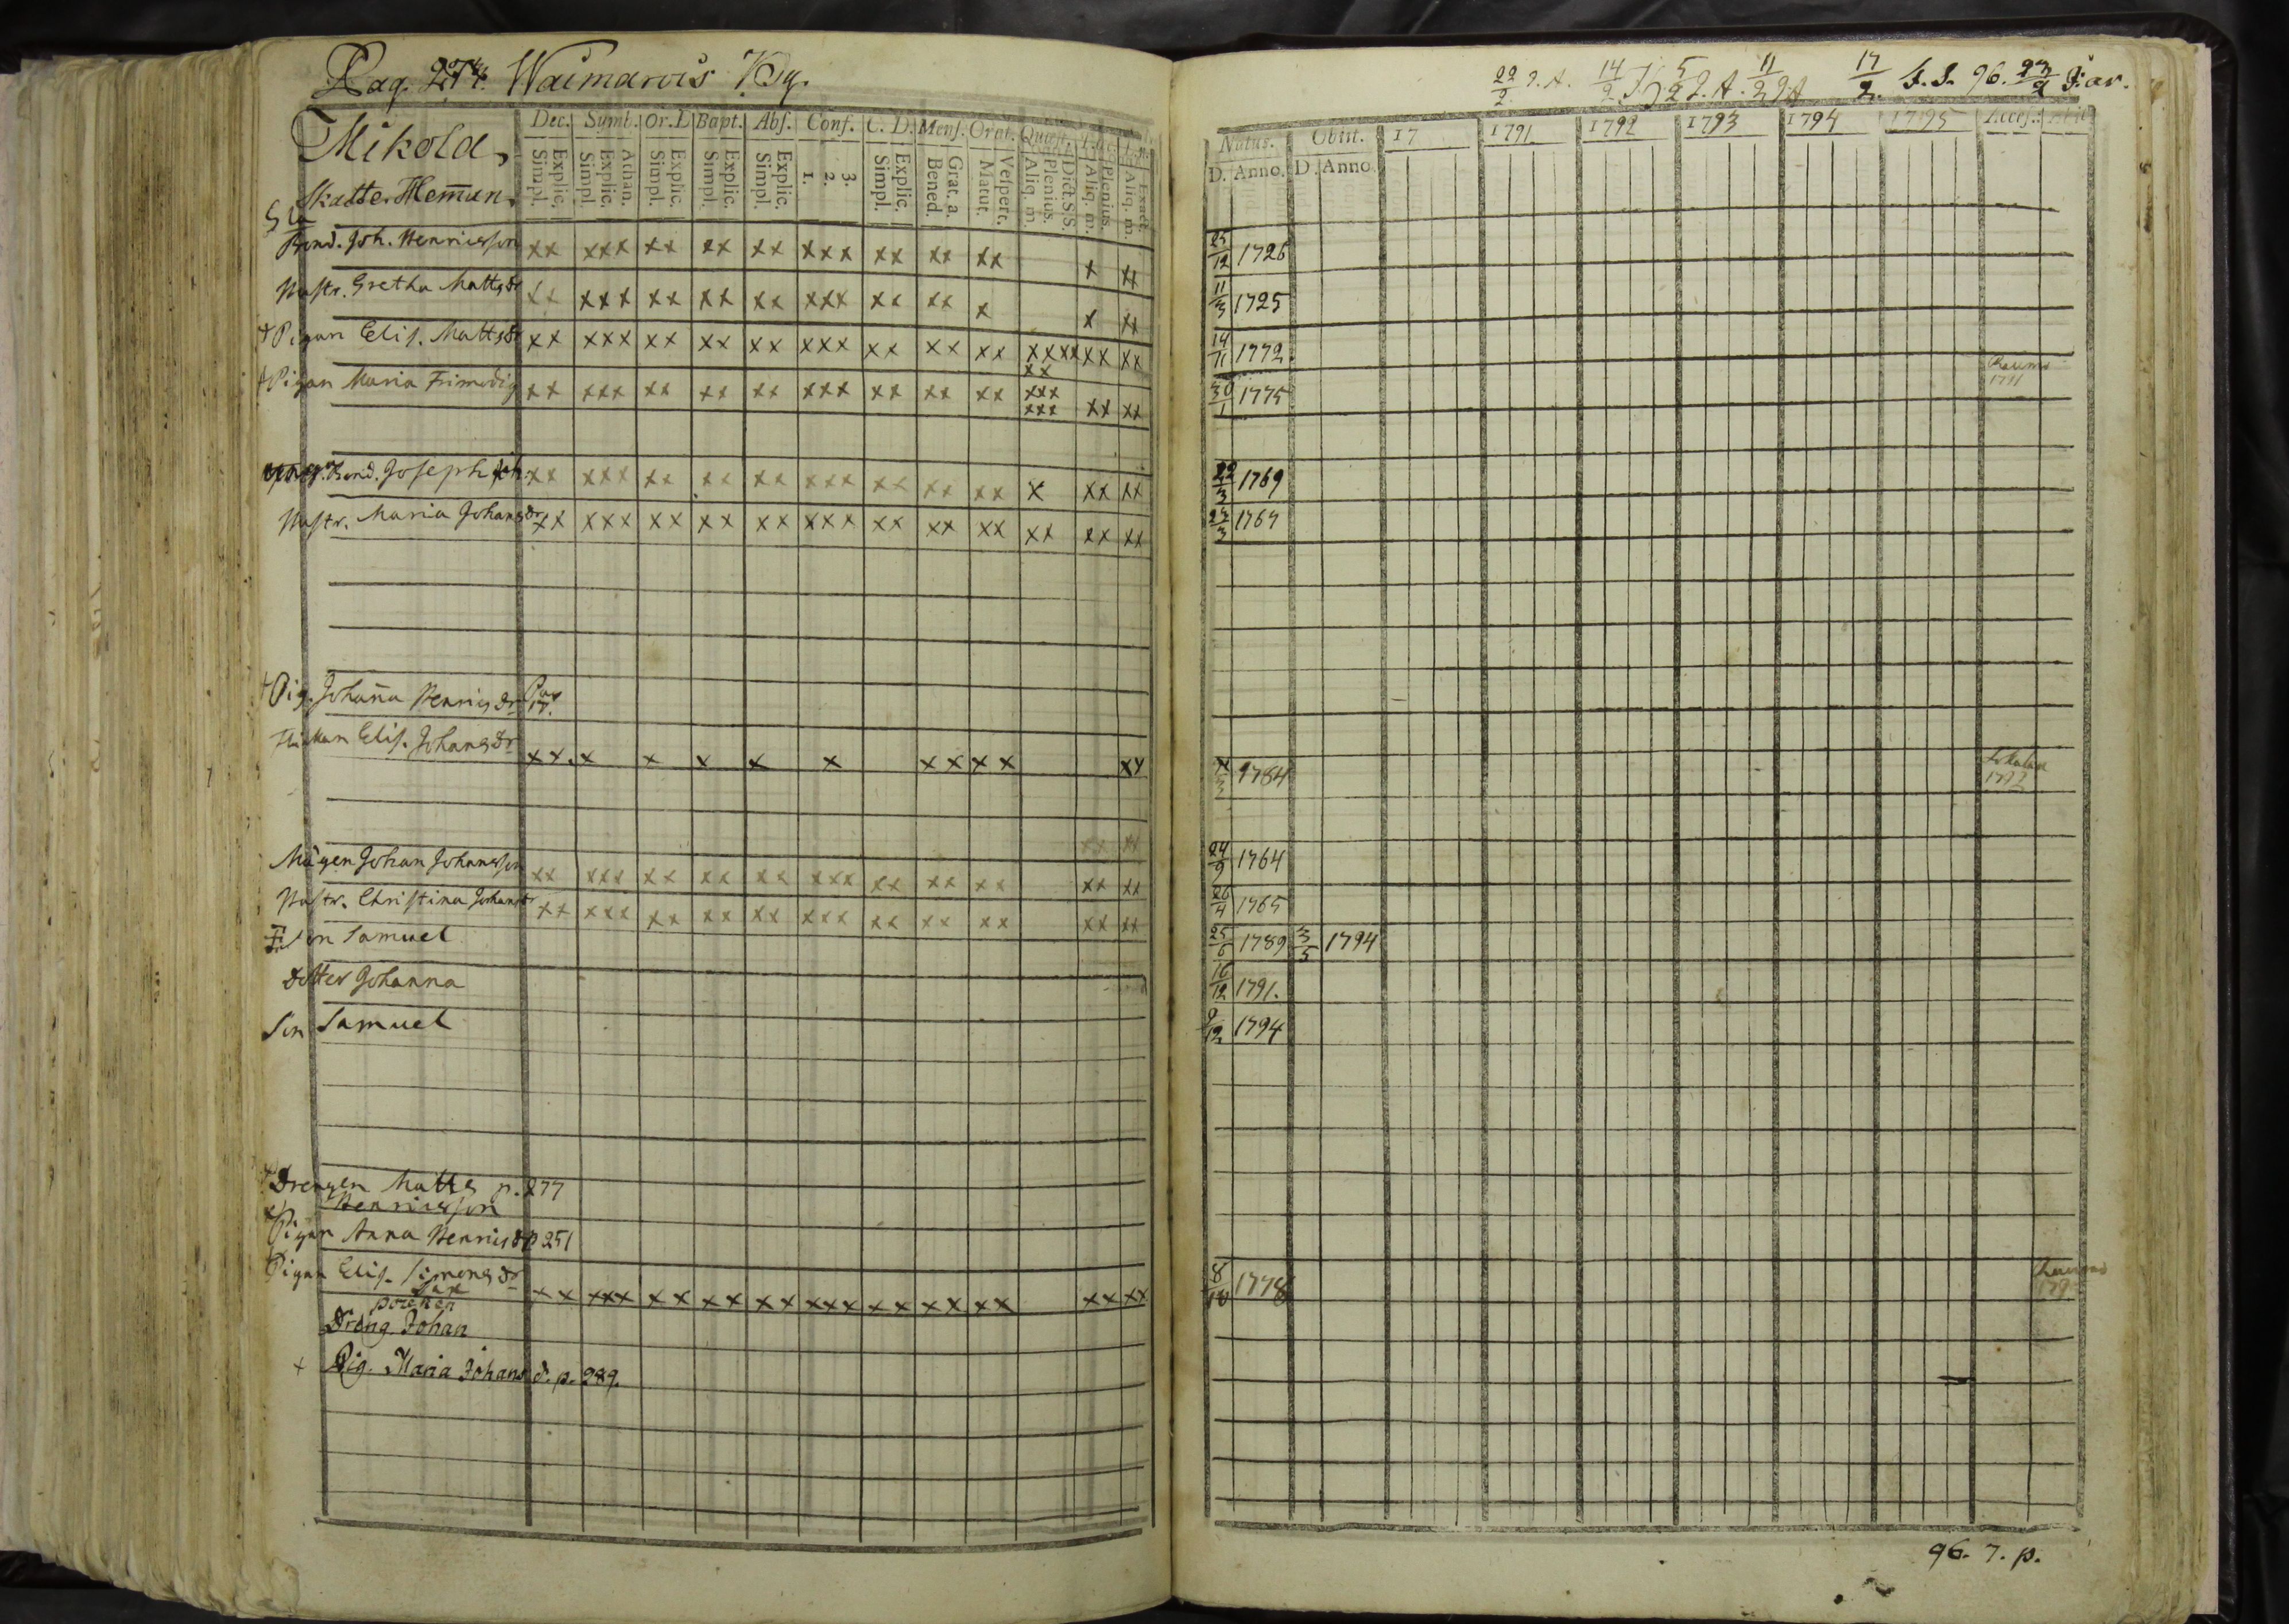 Pag. 274. Waimarois
Mikola,
Skatte. Hem̄an.
Dec. Symb. Or. D Bapt. Abs. Conf. C. D. Mens. Orat. Quæst.
Explic. Simpl. Athan. Explic. Simpl. Explic. Simpl. Explic. Simpl. Explic. Simpl. 3. 2. 1. Explic. Simpl. Grat. a. Bened. Vespert. Matut. Dict. S.S. Plenius. Aliq. m. Plenius. Aliq. m. Exact. Aliq. m.
Bond. Joh. Henricsson xx xxx xx xx xx xxx xx xx xx x xx
Hustr. Gretha Mattsdr xx xxx xx xx xx xxx xx xx x x xx
+ Pigan Elis. Mattsdr xx xxx xx xx xx xxx xx xx xx xxxx xx xx xx
+ Pigan Maria Frimodig xx xxx xx xx xx xxx xx xx xx xxx xxx xx xx
Bond. Joseph Joh. xx xxx xx xx xx xxx xx xx xx x xx xx
Hustr. Maria Johansdr xx xxx xx xx xx xxx xx xx xx xx xx xx
+ Pig. Johan̄a Henricsdr
Elis. Johansdr xx x x x x x xx xx xx
xx xx
Mågen Johan Johansson xx xxx xx xx xx xxx xx xx xx xx xx
Hustr. Christina Johansdr xx xxx xx xx xx xxx xx xx xx xx xx
Son Samuel
Dotter Johanna
Son Samuel
Drengen Matts p. 277
Henricsson
Pigan Anna Henricsdr p 251
Pigan Elis. Simonsdr xx xxx xx xx xx xxx xx xx xx xx xx
Dreng. Johan
+ Pig. Maria Johans d. p. 289.
22/2 J. A. 14/2 5/2 J. A. 11/2 J A 17/2 J. J. 96. 23/2
Natus. Obiit. 17 1791 1792 1793 1794 1795 Access.
D. Anno. D. Anno.
25/12 1726
11/3 1725
14/11 1772.
30/1 1775 1791
22/3 1769
23/3 1767
1784 1792
24/9 1764
26/4 1765
25/6 1789 3/5 1794
16/12 1791.
9/12 1794
8/10 1778
96. 7. p.